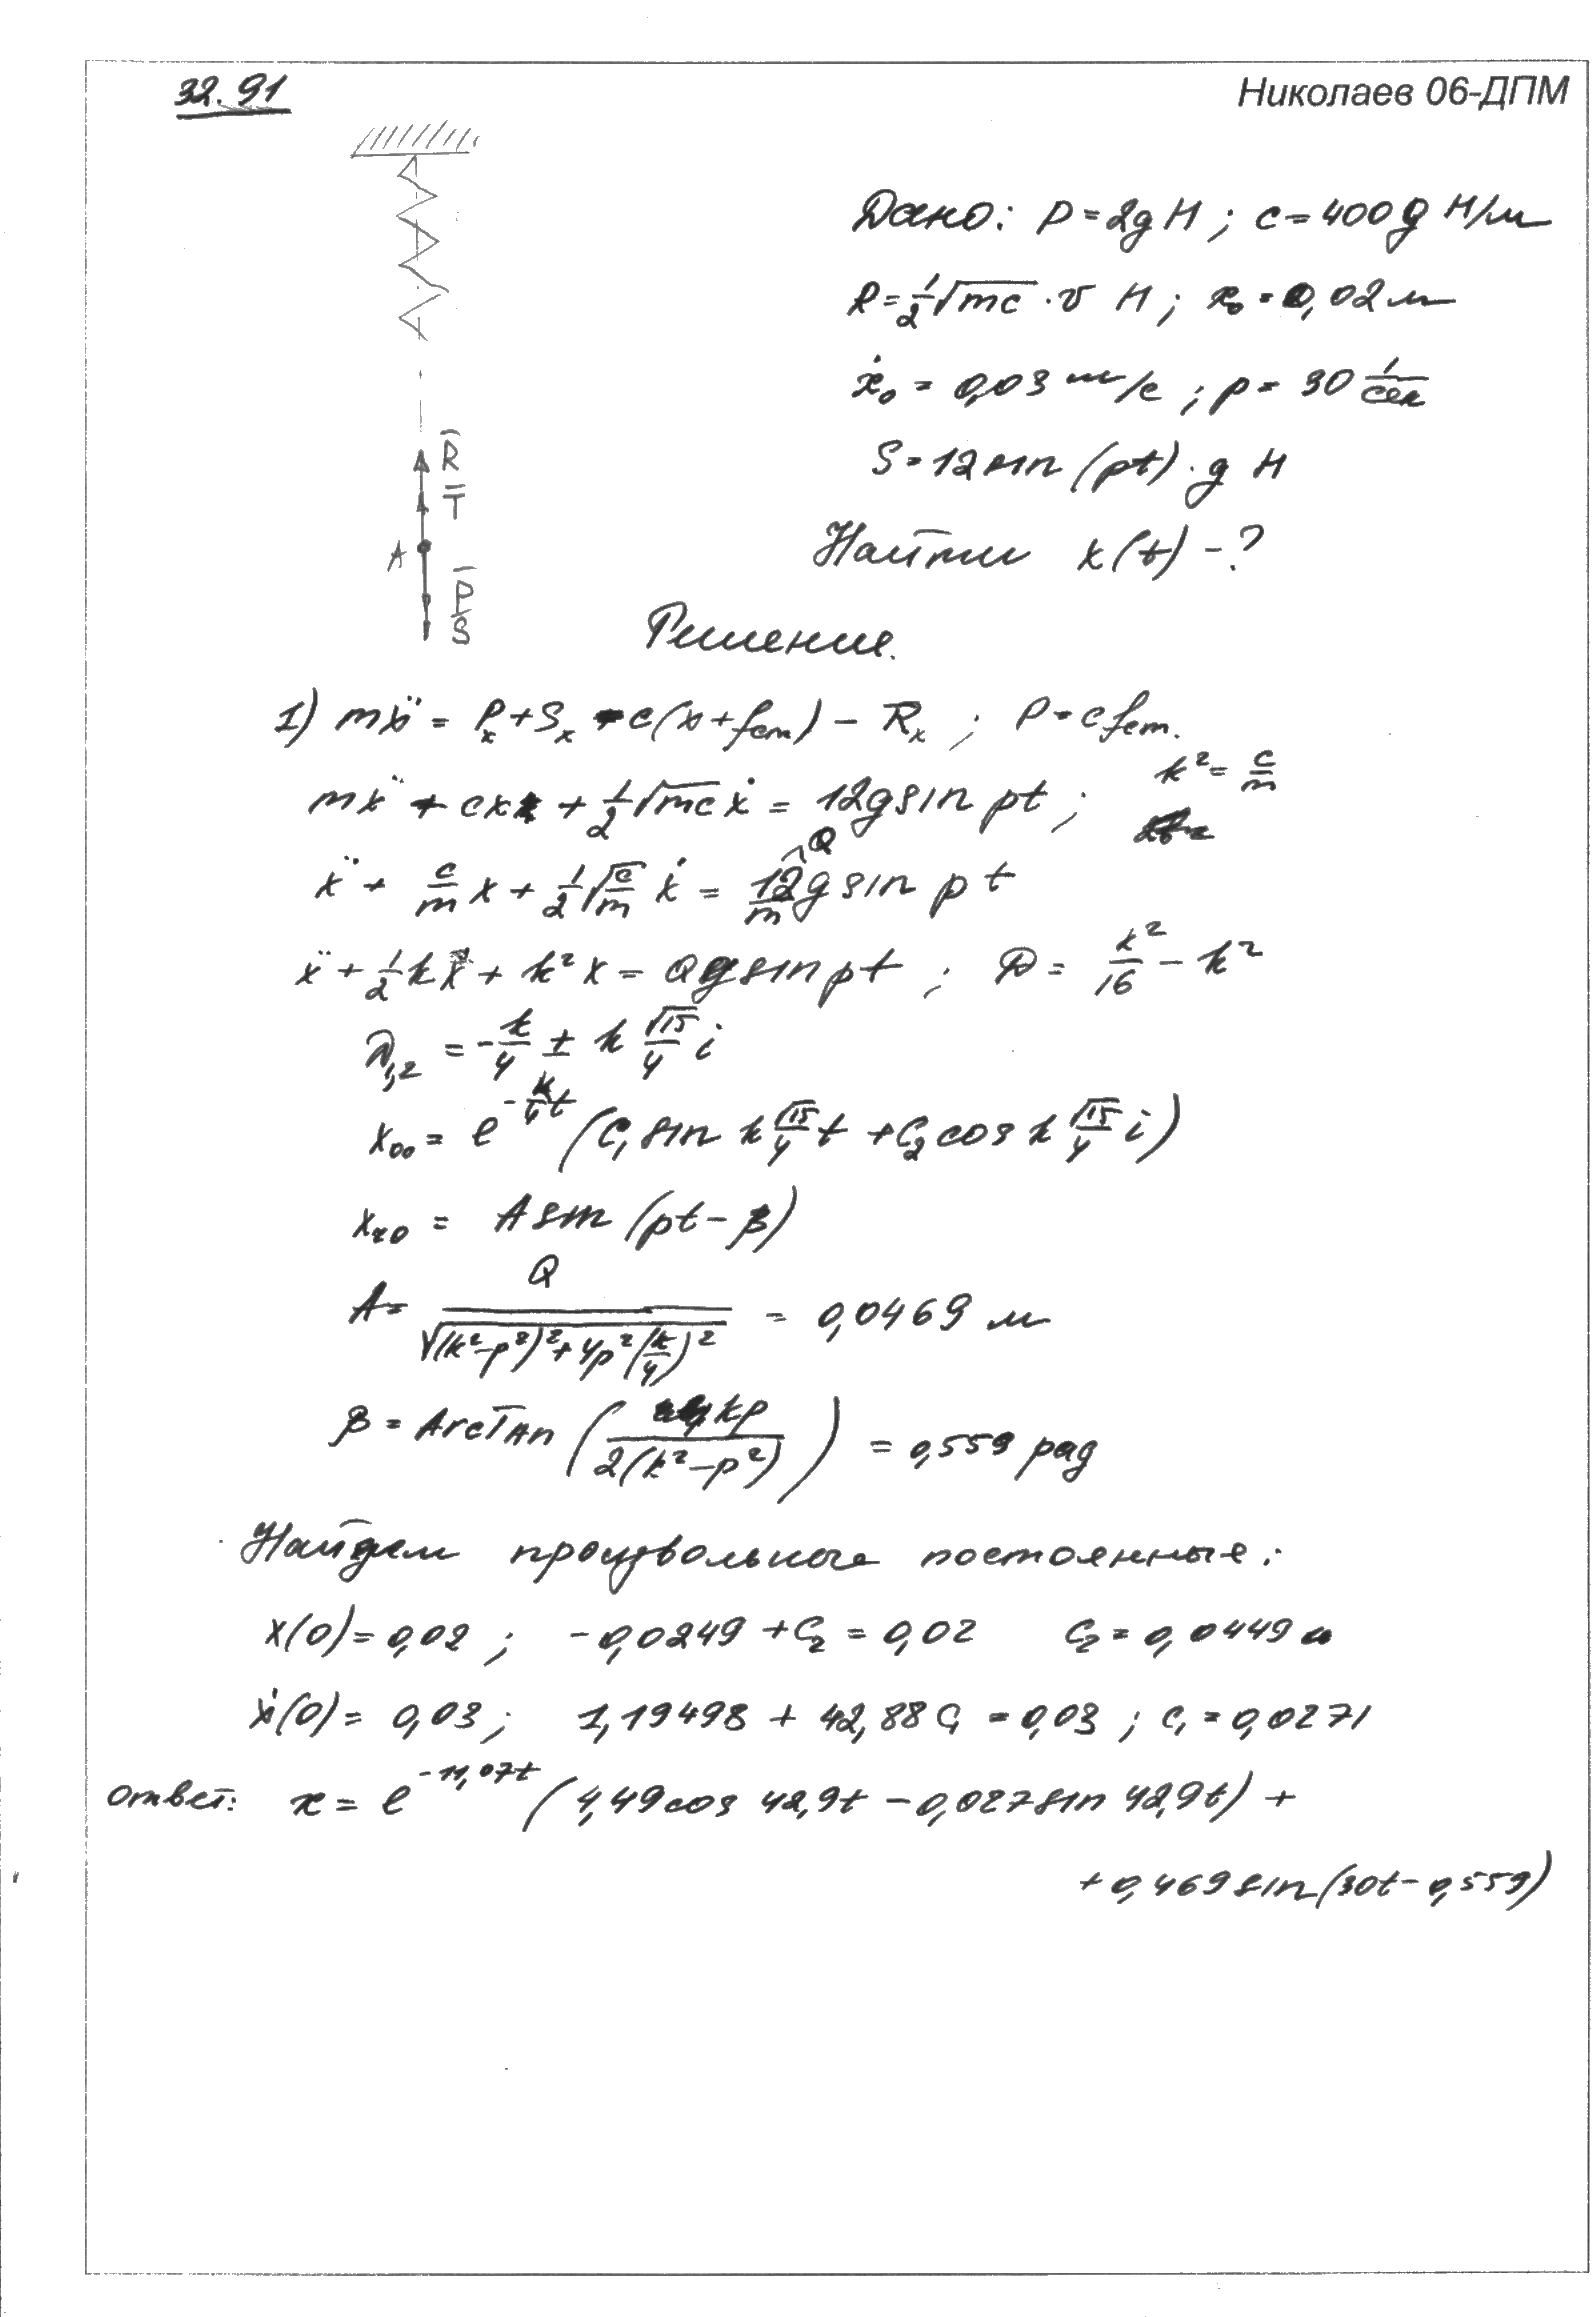 32.91
Николаев 06-ДПМ
Дано: P=2g Н ; c=400g Н/м
R=1/2√mc · v Н ; x₀=0,02 м
ẋ₀ = 0,03 м/с ; p= 30 1/сек
S=12 sin (pt) · g Н
R̅
T̅
A
P̅
S̅
Найти x(t) -?
Решение.
1) mẍ = Pₓ+Sₓ - c(x+fст) - Rₓ ; P=cfст.
mẍ + cx + 1/2√mc ẋ = 12g sin pt ; k²= c/m
ẍ + c/m x + 1/2√c/m ẋ = 12/m g sin pt
Q
ẍ + 1/2 k ẋ + k² x = Q g sin pt ; D = k²/16 - k²
λ₁,₂ = -k/4 ± k √15/4 i
xₒₒ = e^(-k/4 t) (C₁ sin k √15/4 t + C₂ cos k √15/4 i)
xчо = A sin (pt-β)
A= Q/√((k²-p²)²+4p²(k/4)²) = 0,0469 м
β = ArcTan (kp/2(k²-p²)) = 0,559 рад
Найдем произвольные постоянные:
x(0)=0,02 ; -0,0249 +C₂ = 0,02 C₂=0,0449 м
ẋ(0)= 0,03 ; 1,19498 + 42,88 C₁ = 0,03 ; C₁=0,0271
Ответ: x = e^(-11,07t) (4,49 cos 42,9t - 0,027 sin 42,9t) +
+ 0,469 sin(30t - 0,559)